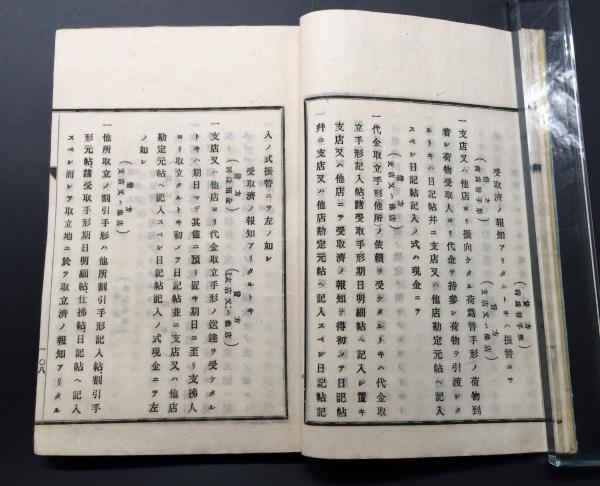 受取濟ノ報知アリタルトキハ振替ニテ
借方
(荷爲替手形)
貸方
(支店又ハ他店)
一支店又ハ他店ヨリ振向ケタル荷爲替手形ノ荷物到
着シ荷物受取人ヨリ代金ヲ持參シ荷物ヲ引渡シタ
ルトキハ日記帖幷ニ支店又ハ他店勘定元帖ヘ記入
スベシ日記帖記入ノ式ハ現金ニテ
貸方
(支店又ハ他店)
一代金取立手形他所ノ依頼ヲ受ケタルトキハ代金取
立手形記入帖諸受取手形期日明細帖ヘ記入シ置キ
支店又ハ他店ニテ受取濟ノ報知ヲ得初メテ日記帖
幷ニ支店又ハ他店勘定元帖ヘ記入スベシ日記帖記
入ノ式振替ニテ左ノ如シ
受取濟ノ報知アリタルトキ
借方
貸方
(支店又ハ他店)
一支店又ハ他店ヨリ代金取立手形ノ送達ヲ受ケタル
トキハ期日マデ其儘ニ預リ置キ期日ニ至リ支拂人
ヨリ取立タルトキ初メテ日記帖並ニ支店又ハ他店
勘定元帖ヘ記入スベシ日記帖記入ノ式現金ニテ左
ノ如シ
貸方
(支店又ハ他店)
一他所取立ノ割引手形ハ他所割引手形記入帖割引手
形元帖諸受取手形期日明細帖、仕拂帖、日記帖ヘ記入
スベシ而シテ取立地ニ於テ取立濟ノ報知アリタル
一〇八